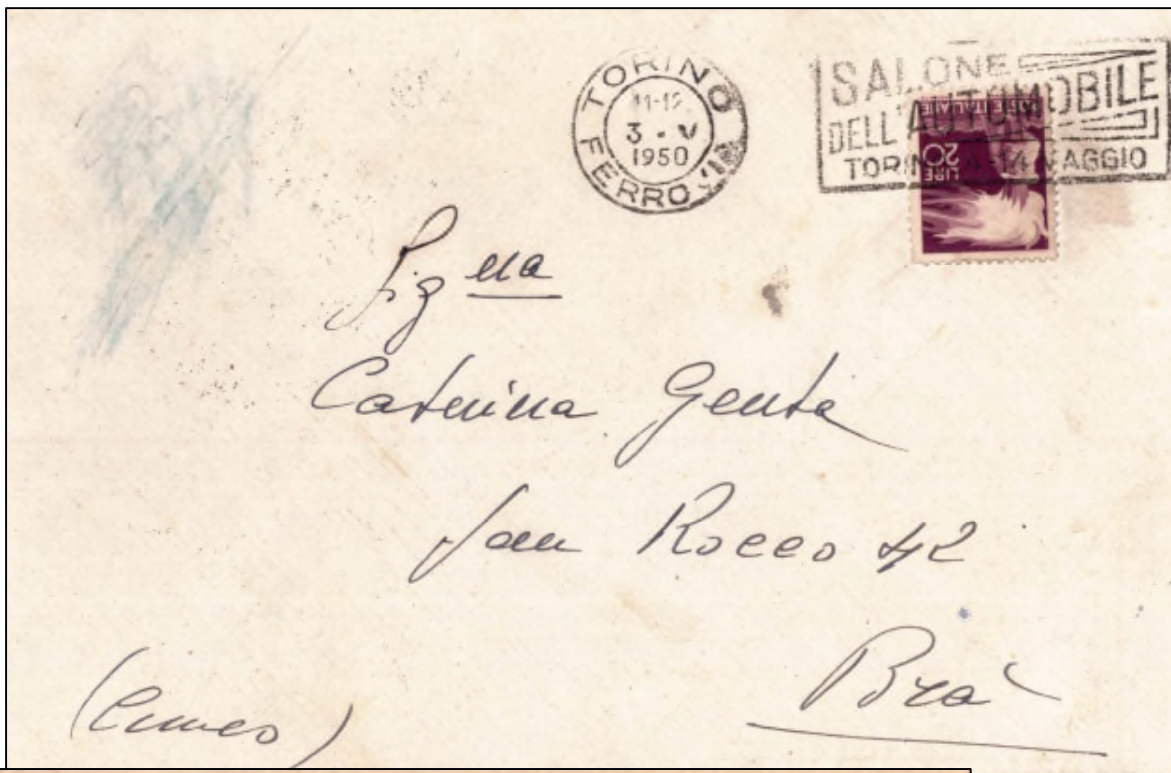 TORINO
11-12
3 · V
1950
FERROVIA
SALONE
DELL'AUTOMOBILE
TORINO 4-14 MAGGIO
POSTE ITALIANE
LIRE
20
Sig na
Caterina Genta
San Rocco 42
Bra'
(Cuneo)